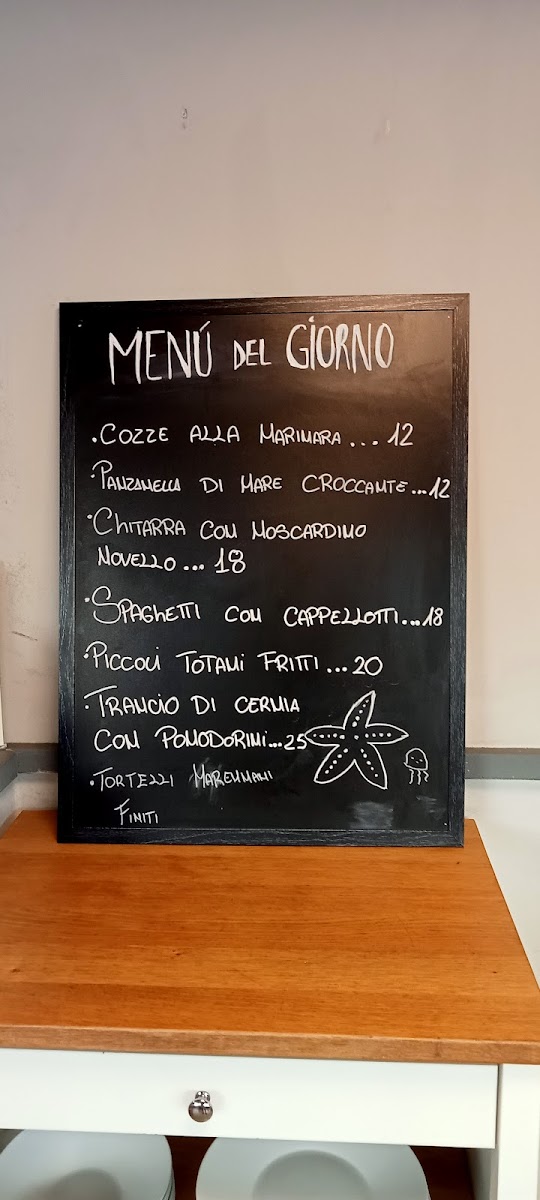 MENÚ DEL GIORNO
. COZZE ALLA MARINARA ... 12
. PANZANELLA DI MARE CROCCANTE ... 12
. CHITARRA CON MOSCARDINO
NOVELLO ... 18
. SPAGHETTI CON CAPPELLOTTI ... 18
. PICCOLI TOTANI FRITTI ... 20
. TRANCIO DI CERNIA
CON POMODORINI ... 25
. TORTELLI MAREMMANI
FINITI